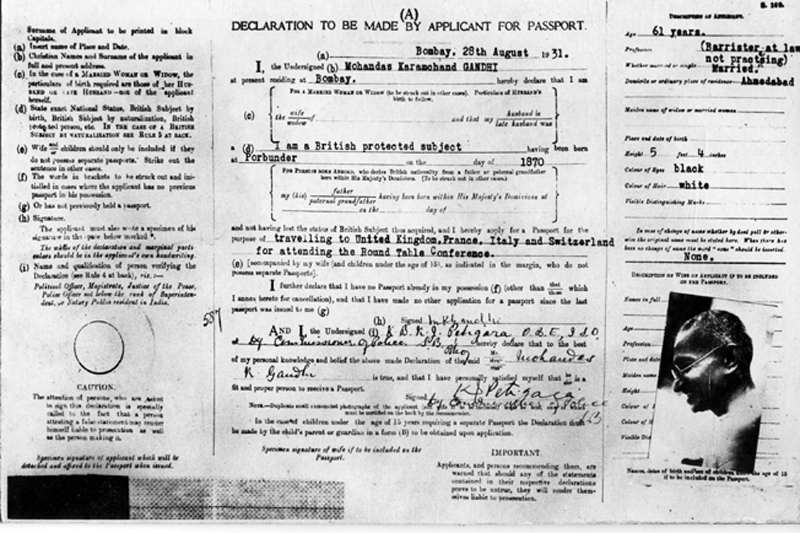 Surname of Applicant to be printed in block
Capitals.
(a) Insert name of Place and Date.
(b) Christian Names and Surname of the applicant in
full and present address.
(c) In the case of a MARRIED WOMAN OR WIDOW, the
particulars of birth required are those of her HUS-
BAND OR LATE HUSBAND—not of the applicant
herself.
(d) State exact National Status, British Subject by
birth, British Subject by naturalization, British
protected person, etc. IN THE CASE OF A BRITISH
SUBJECT BY NATURALISATION SEE RULE 5 AT BACK.
(e) Wife and children should be included only if they
do not possess separate passports. Strike out the
sentence in other cases.
(f) The words in brackets to be struck out and ini-
tialled in cases where the applicant has no previous
passport in his possession.
(g) Or has not previously held a passport.
(h) Signature.
The applicant must also write a specimen of his
signature in the space below marked *.
The whole of the declaration and marginal parti-
culars should be in the applicant's own handwriting.
(i) Name and qualification of person verifying the
Declaration (see Rule 4 at back), viz. :—
Political Officer, Magistrate, Justice of the Peace,
Police Officer not below the rank of Superinten-
dent, or Notary Public resident in India.
CAUTION.
The attention of persons, who are asked
to sign this declaration is specially
called to the fact that a person
attesting a false statement may render
himself liable to prosecution as well
as the person making it.
Specimen signature of applicant which will be
detached and affixed to the Passport when issued.
(A)
DECLARATION TO BE MADE BY APPLICANT FOR PASSPORT.
(a) Bombay, 28th August 1931.
I, the Undersigned (b) Mohandas Karamchand GANDHI
at present residing at Bombay. hereby declare that I am
FOR A MARRIED WOMAN OR WIDOW (to be struck out in other cases). Particulars of HUSBAND'S
birth to follow.
(c) the wife widow of and that my husband is late husband was
a (d) I am a British protected subject having been born
at Porbunder on the day of 1870
FOR PERSONS BORN ABROAD, who derive British nationality from a father or paternal grandfather
born within His Majesty's Dominions. (To be struck out in other cases.)
my (his) father paternal grandfather having been born within His Majesty's Dominions at
on the day of
and not having lost the status of British Subject thus acquired, and I hereby apply for a Passport for the
purpose of travelling to United Kingdom,France, Italy and Switzerland
for attending the Round Table Conference.
(e) [accompanied by my wife (and children under the age of 15, as indicated in the margin, who do not
possess separate Passports].
I further declare that I have no Passport already in my possession (f) (other than that those which
I annex hereto for cancellation), and that I have made no other application for a passport since the last
passport was issued to me (g)
(h) Signed MKGandhi
AND I, the Undersigned (i) K. J. Petigara O.B.E., I.S.O,
Dy. Commissioner of Police S.B. hereby declare that to the best
of my personal knowledge and belief the above made Declaration of the said Mr. Mohandas
K. Gandhi is true, and that I have personally satisfied myself that he is a
fit and proper person to receive a Passport.
Signed K J Petigara
Dy Commissioner of Police
SB
In the case of children under the age of 15 years requiring a separate Passport the Declaration must
be made by the child's parent or guardian in a form (B) to be obtained upon application.
Specimen signature of wife if to be included on the
Passport.
IMPORTANT.
Applicants, and persons recommending them, are
warned that should any of the statements
contained in their respective declarations
prove to be untrue, they will render them-
selves liable to prosecution.
DESCRIPTION OF APPLICANT.
Age 61 years.
Profession (Barrister at law
not practising)
Whether married or single Married.
Domicile or ordinary place of residence Ahmedabad
Maiden name of widow or married woman
Place and date of birth
Height 5 feet 4 inches
Colour of Eyes black
Colour of Hair white
Visible Distinguishing Marks
In case of change of name whether by deed poll or other-
wise the original name must be stated here. When there has
been no change of name the word "none" should be inserted.
None.
DESCRIPTION OF WIFE OF APPLICANT IF TO BE INCLUDED
ON THE PASSPORT.
Names in full
Age
Profession
Place and date
Maiden name
Height
Colour of
Colour of
Visible Dis
Names, dates of birth and sex of children under the age of 15
if to be included on the Passport.